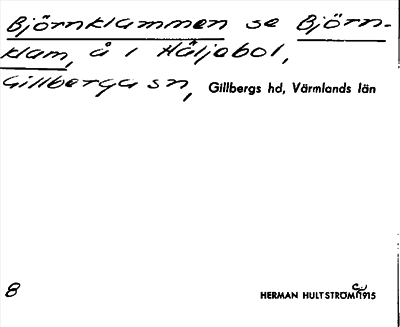 Björnklammen se Björn-
klam, å i Håljebol,
Gillberga sn, Gillbergs hd, Värmlands län
8
HERMAN HULTSTRÖM 1915